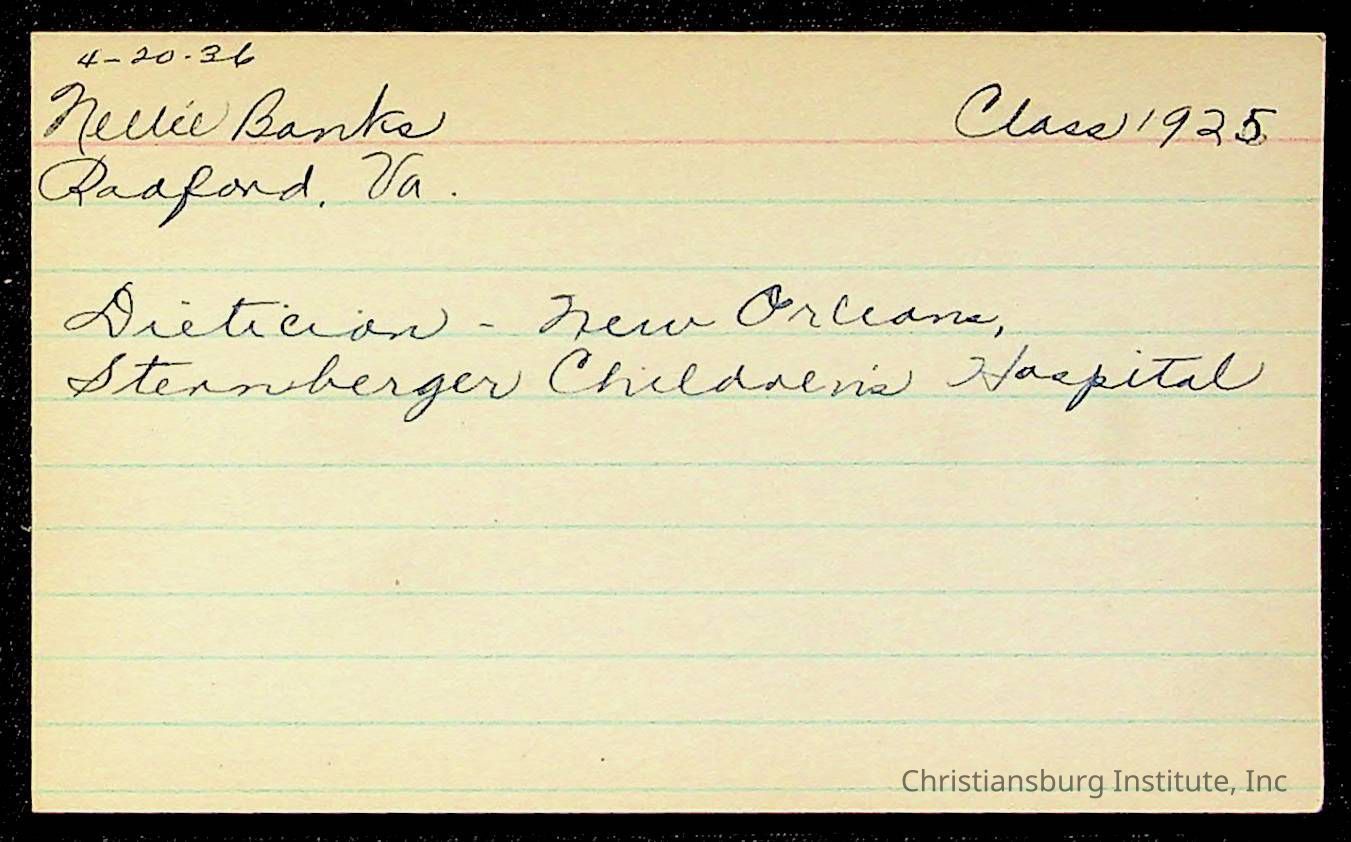 4-20-36
Nellie Banks Class 1925
Radford, Va.
Dietician - New Orleans,
Sternberger Children's Hospital
Christiansburg Institute, Inc